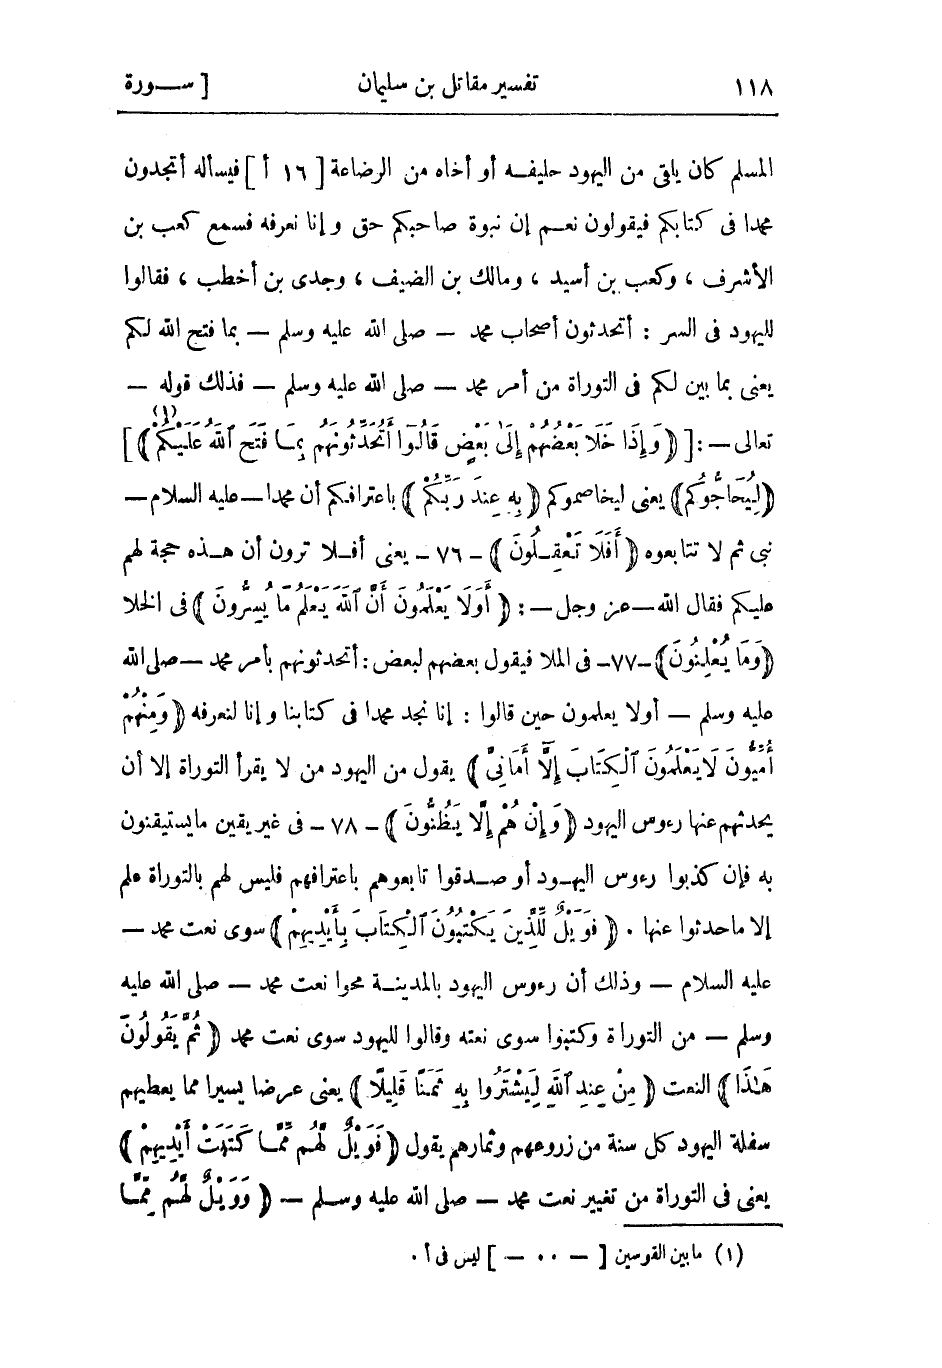 ١١٨ تفسير مقاتل بن سليمان [ ســورة
المسلم كان يلقى من اليهود حليفــه أو أخاه من الرضاعة [ ١٦ أ ] فيسأله أتجدون
محمدا فى كتابكم فيقولون نعــم إن نبوة صاحبكم حق وإنا نعرفه فسمع كعب بن
الأشرف ، وكعب بن أسيد ، ومالك بن الضيف ، وجدى بن أخطب ، فقالوا
لليهود فى السر : أتحدثون أصحاب محمد — صلى الله عليه وسلم — بما فتح الله لكم
يعنى بما بين لكم فى التوراة من أمر محمد — صلى الله عليه وسلم — فذلك قوله —
تعالى — : [ ﴿ وَإِذَا خَلَا بَعْضُهُمْ إِلَىٰ بَعْضٍ قَالُوٓا أَتُحَدِّثُونَهُم بِمَـا فَتَحَ ٱللَّهُ عَلَيْكُمْ ﴾ ] (١)
﴿ لِيُحَاجُّوكُم ﴾ يعنى ليخاصموكم ﴿ بِهِ عِندَ رَبِّكُمْ ﴾ باعترافكم أن محمدا — عليه السلام —
نبى ثم لا تتابعوه ﴿ أَفَلَا تَعْقِـلُونَ ﴾ - ٧٦ - يعنى أفـلا ترون أن هـذه حجة لهم
عليكم فقال الله — عز وجل — : ﴿ أَوَلَا يَعْلَمُونَ أَنَّ ٱللَّهَ يَعْلَمُ مَا يُسِرُّونَ ﴾ فى الخلا
﴿ وَمَا يُعْلِنُونَ ﴾ - ٧٧ - فى الملا فيقول بعضهم لبعض : أتحدثونهم بأمر محمد — صلى الله
عليه وسلم — أولا يعلمون حين قالوا : إنا نجد محمدا فى كتابنا وإنا لنعرفه ﴿ وَمِنْهُمْ
أُمِّيُّونَ لَا يَعْلَمُونَ ٱلْكِتَابَ إِلَّآ أَمَانِىَّ ﴾ يقول من اليهود من لا يقرأ التوراة إلا أن
يحدثهم عنها رءوس اليهود ﴿ وَإِنْ هُمْ إِلَّا يَظُنُّونَ ﴾ - ٧٨ - فى غير يقين ما يستيقنون
به فإن كذبوا رءوس اليهـود أو صـدقوا تابعوهم باعترافهم فليس لهم بالتوراة علم
إلا ما حدثوا عنها . ﴿ فَوَيْلٌ لِّلَّذِينَ يَكْتُبُونَ ٱلْكِتَابَ بِأَيْدِيهِمْ ﴾ سوى نعت محمد —
عليه السلام — وذلك أن رءوس اليهود بالمدينـة محوا نعت محمد — صلى الله عليه
وسلم — من التوراة وكتبوا سوى نعته وقالوا لليهود سوى نعت محمد ﴿ ثُمَّ يَقُولُونَ
هَـٰذَا ﴾ النعت ﴿ مِنْ عِندِ ٱللَّهِ لِيَشْتَرُوا بِهِ ثَمَنًا قَلِيلًا ﴾ يعنى عرضا يسيرا مما يعطيهم
سفلة اليهود كل سنة من زروعهم وثمارهم يقول ﴿ فَوَيْلٌ لَّهُم مِّمَّـا كَتَبَتْ أَيْدِيهِمْ ﴾
يعنى فى التوراة من تغيير نعت محمد — صلى الله عليه وسـلم — ﴿ وَوَيْلٌ لَّهُم مِّمَّـا
(١) ما بين القوسين [ — ٠٠ — ] ليس فى أ .